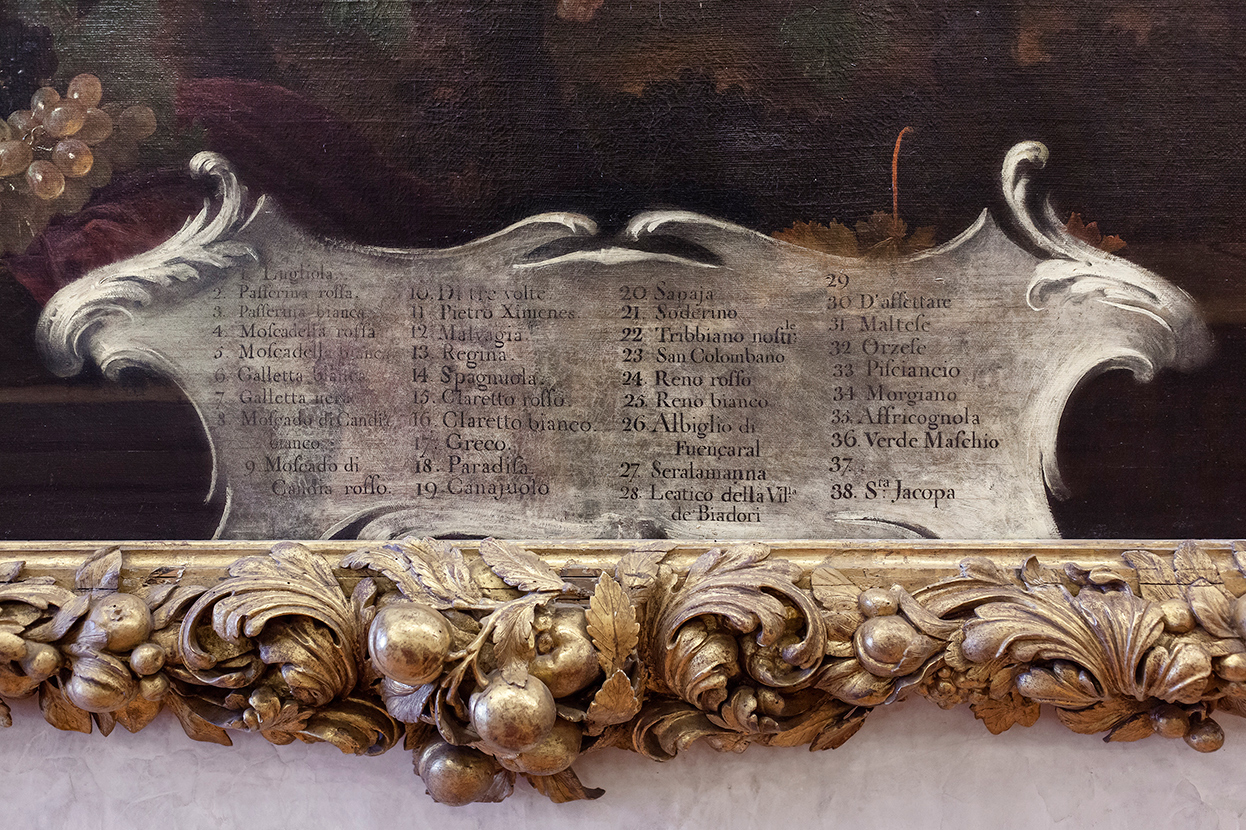 1. Lugliola.
2. Paſſerina roſſa.
3. Paſſerina bianca
4. Moſcadella roſſa
5. Moſcadella bianca
6. Galletta bianca
7. Galletta nera
8. Moſcado di Candia
bianco.
9 Moſcado di
Candia roſſo.
10. Di tre volte.
11 Pietro Ximenes
12 Malvagia
13. Regina.
14. Spagnuola.
15. Claretto roſſo.
16. Claretto bianco.
17. Greco.
18. Paradiſa
19. Canajuolo
20 Sapaja
21. Soderino
22 Tribbiano noſtrle
23 San Colombano
24. Reno roſſo
25. Reno bianco
26. Albiglio di
Fuencaral
27. Seralamanna
28. Leatico della Villa
de Biadori
29
30 D'aſſettare
31 Malteſe
32 Orzeſe
33 Piſciancio
34 Morgiano
35. Affricognola
36 Verde Maſchio
37.
38. Sra. Jacopa